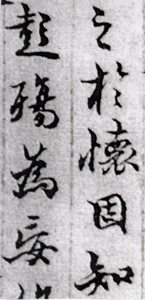 之於懷固知
彭殤為妄